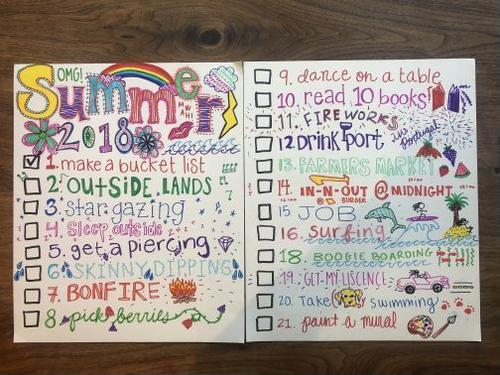 OMG!
Summer!
2018
1. make a bucket list
2. OUTSIDE LANDS
3. Star gazing
4. Sleep outside
5. get a piercing
6. SKINNY DIPPING
7. BONFIRE
8. pick berries
9. dance on a table
10. read 10 books
11. FIREWORKS
12. Drink port in Portugal
13. FARMERS MARKET
14. IN-N-OUT BURGER @ MIDNIGHT
15 JOB
16. Surfing
18. BOOGIE BOARDING
19. GET MY LISCENCE
20. Take swimming
21. paint a mural